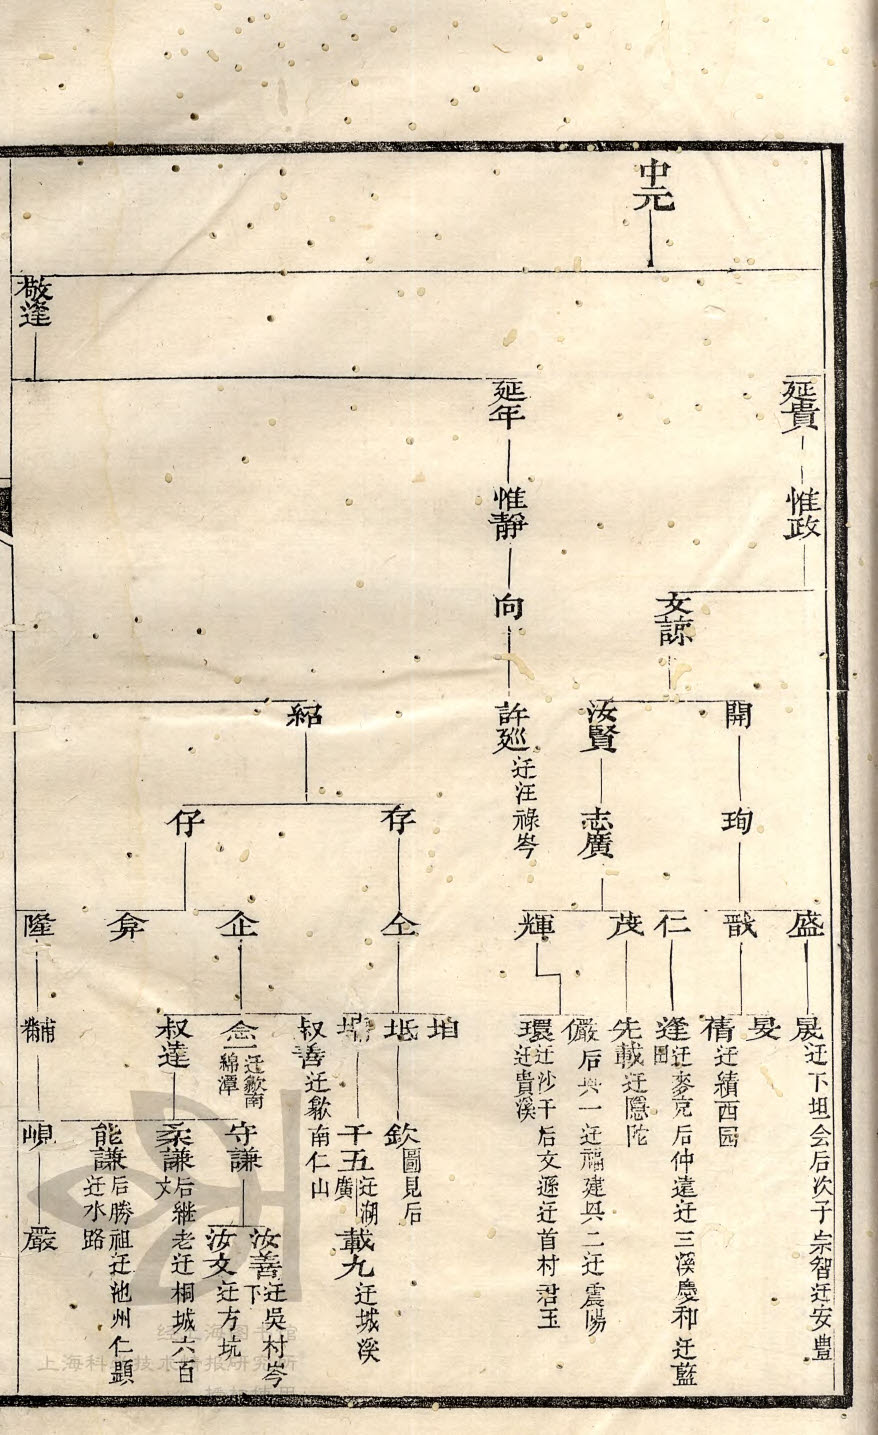 中元
敬逢
延貴
延年
惟政
惟靜
文諒
向
開
汝賢
許廵
迁汪祿岑
紹
珣
志廣
存
仔
盛
戩
仁
茂
輝
仝
企
弇
隆
晟
迁下坦会后次子宗智迁安豊
旻
蒨
迁績西园
逢
迁麥克后仲達迁三溪慶和迁藍
田
先載
迁隱陀
儼
后興一迁福建興二迁震陽
環
迁沙干后文遜迁首村君玉
迁貴溪
坦
坻
叔善
迁歙南仁山
念一
迁歙南
綿潭
叔達
黼
欽
圖見后
千五
迁湖
廣
守謙
柔謙
后継老迁桐城六百
丈
能謙
后勝祖迁池州仁顕
迁水路
峴
載九
迁城溪
汝善
迁吳村岑
下
汝文
迁方坑
嚴
上海科学技术情报研究所